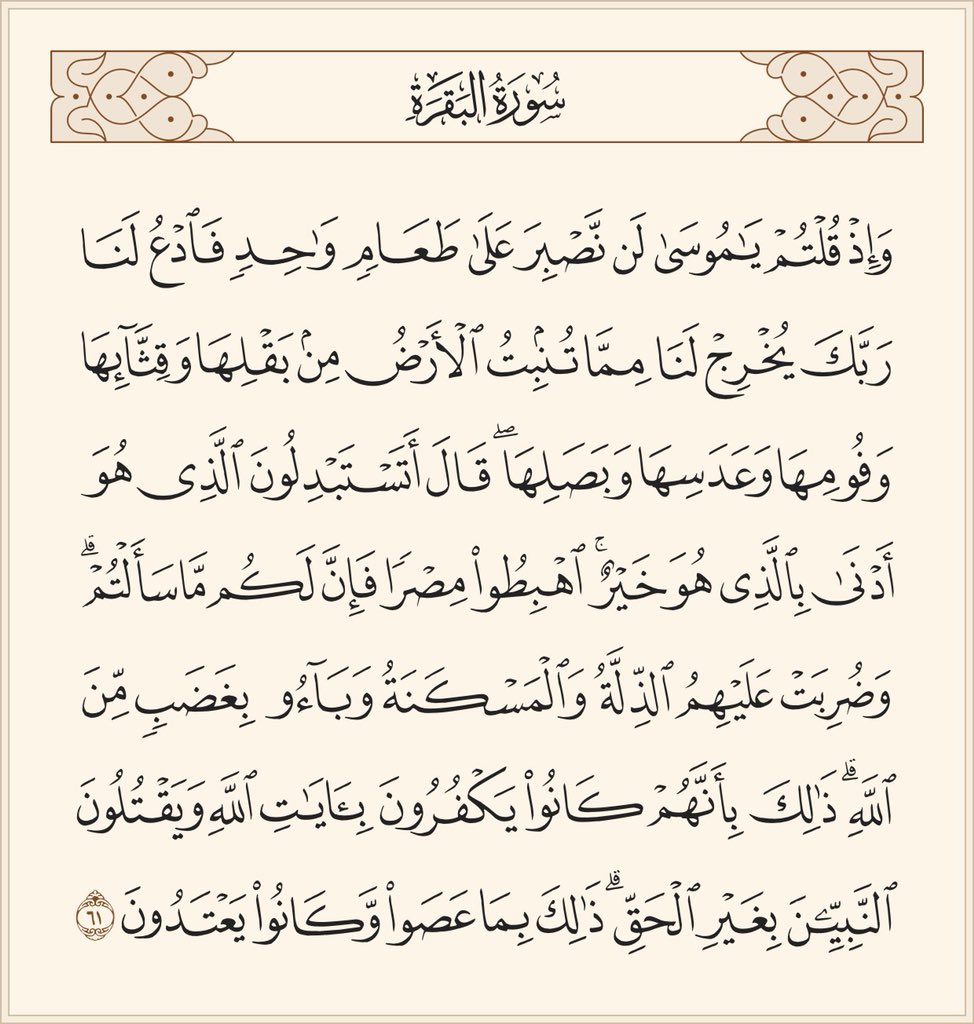 سُورَةُ البَقَرَةِ
وَإِذۡ قُلۡتُمۡ يَٰمُوسَىٰ لَن نَّصۡبِرَ عَلَىٰ طَعَامٖ وَٰحِدٖ فَٱدۡعُ لَنَا
رَبَّكَ يُخۡرِجۡ لَنَا مِمَّا تُنۢبِتُ ٱلۡأَرۡضُ مِنۢ بَقۡلِهَا وَقِثَّآئِهَا
وَفُومِهَا وَعَدَسِهَا وَبَصَلِهَاۖ قَالَ أَتَسۡتَبۡدِلُونَ ٱلَّذِي هُوَ
أَدۡنَىٰ بِٱلَّذِي هُوَ خَيۡرٌۚ ٱهۡبِطُواْ مِصۡرٗا فَإِنَّ لَكُم مَّا سَأَلۡتُمۡۗ
وَضُرِبَتۡ عَلَيۡهِمُ ٱلذِّلَّةُ وَٱلۡمَسۡكَنَةُ وَبَآءُو بِغَضَبٖ مِّنَ
ٱللَّهِۗ ذَٰلِكَ بِأَنَّهُمۡ كَانُواْ يَكۡفُرُونَ بِـَٔايَٰتِ ٱللَّهِ وَيَقۡتُلُونَ
ٱلنَّبِيِّـۧنَ بِغَيۡرِ ٱلۡحَقِّۗ ذَٰلِكَ بِمَا عَصَواْ وَّكَانُواْ يَعۡتَدُونَ ٦١